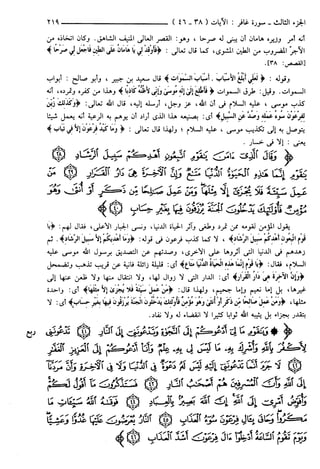 الجزء الثالث - سورة غافر : الآيات ( ٣٨ - ٤٦ ) ٢١٩
أنه أمر وزيره هامان أن يبنى له صرحا ، وهو : القصر العالى المنيف الشاهق. وكان اتخاذه من
الآجر المضروب من الطين المشوى، كما قال تعالى : ﴿فَأَوْقِدْ لِي يَا هَامَانُ عَلَى الطِّينِ فَاجْعَل لِّي صَرْحًا ﴾
[القصص: ٣٨].
وقوله : ﴿ لَعَلِّي أَبْلُغُ الأَسْبَابَ . أَسْبَابَ السَّمَوَاتِ ﴾ قال سعيد بن جبير ، وأبو صالح : أبواب
السموات. وقيل: طرق السموات ﴿ فَأَطَّلِعَ إِلَىٰ إِلَٰهِ مُوسَىٰ وَإِنِّي لأَظُنُّهُ كَاذِبًا ﴾ وهذا من كفره وتمرده، أنه
كذب موسى ، عليه السلام فى أن الله، عز وجل، أرسله إليه، قال الله تعالى: ﴿ وَكَذَلِكَ زُيِّنَ
لِفِرْعَوْنَ سُوءُ عَمَلِهِ وَصُدَّ عَنِ السَّبِيلِ﴾ أى: بصنيعه هذا الذى أراد أن يوهم به الرعية أنه يعمل شيئا
يتوصل به إلى تكذيب موسى ، عليه السلام ، ولهذا قال تعالى : ﴿ وَمَا كَيْدُ فِرْعَوْنَ إِلاَّ فِي تَبَابٍ ﴾
يعنى : إلا فى خسار .
﴿ وَقَالَ الَّذِي ءَامَنَ يَٰقَوْمِ اتَّبِعُونِ أَهْدِكُمْ سَبِيلَ الرَّشَادِ ﴿٣٨﴾
يَٰقَوْمِ إِنَّمَا هَٰذِهِ الْحَيَوٰةُ الدُّنْيَا مَتَٰعٌ وَإِنَّ الْآخِرَةَ هِيَ دَارُ الْقَرَارِ ﴿٣٩﴾ مَنْ
عَمِلَ سَيِّئَةً فَلَا يُجْزَىٰ إِلَّا مِثْلَهَا وَمَنْ عَمِلَ صَٰلِحًا مِّن ذَكَرٍ أَوْ أُنثَىٰ وَهُوَ
مُؤْمِنٌ فَأُولَٰئِكَ يَدْخُلُونَ الْجَنَّةَ يُرْزَقُونَ فِيهَا بِغَيْرِ حِسَابٍ ﴿٤٠﴾ ﴾
يقول المؤمن لقومه ممن تمرد وطغى وآثر الحياة الدنيا، ونسى الجبار الأعلى، فقال لهم: ﴿ يَا
قَوْمِ اتَّبِعُونِ أَهْدِكُمْ سَبِيلَ الرَّشَادِ﴾ ، لا كما كذب فرعون فى قوله: ﴿ وَمَا أَهْدِيكُمْ إِلاَّ سَبِيلَ الرَّشَادِ﴾. ثم
زهدهم فى الدنيا التى آثروها على الأخرى، وصدتهم عن التصديق برسول الله موسى عليه
السلام، فقال: ﴿ يَا قَوْمِ إِنَّمَا هَذِهِ الْحَيَاةُ الدُّنْيَا مَتَاعٌ ﴾ أى: قليلة زائلة فانية عن قريب تذهب وتضمحل
﴿ وَإِنَّ الآخِرَةَ هِيَ دَارُ الْقَرَارِ﴾ أى: الدار التى لا زوال لها، ولا انتقال منها ولا ظعن عنها إلى
غيرها، بل إما نعيم وإما جحيم، ولهذا قال: ﴿مَنْ عَمِلَ سَيِّئَةً فَلا يُجْزَىٰ إِلاَّ مِثْلَهَا ﴾ أى: واحدة
مثلها، ﴿وَمَنْ عَمِلَ صَالِحًا مِّن ذَكَرٍ أَوْ أُنثَىٰ وَهُوَ مُؤْمِنٌ فَأُولَئِكَ يَدْخُلُونَ الْجَنَّةَ يُرْزَقُونَ فِيهَا بِغَيْرِ حِسَابٍ ﴾ أى: لا
يتقدر بجزاء بل يثيبه الله ثوابا كثيرا لا انقضاء له ولا نفاد.
﴿ وَيَٰقَوْمِ مَا لِي أَدْعُوكُمْ إِلَى النَّجَوٰةِ وَتَدْعُونَنِي إِلَى النَّارِ ﴿٤١﴾ تَدْعُونَنِي ربع
لِأَكْفُرَ بِاللَّهِ وَأُشْرِكَ بِهِ مَا لَيْسَ لِي بِهِ عِلْمٌ وَأَنَا أَدْعُوكُمْ إِلَى الْعَزِيزِ الْغَفَّٰرِ
﴿٤٢﴾ لَا جَرَمَ أَنَّمَا تَدْعُونَنِي إِلَيْهِ لَيْسَ لَهُ دَعْوَةٌ فِي الدُّنْيَا وَلَا فِي الْآخِرَةِ وَأَنَّ مَرَدَّنَا
إِلَى اللَّهِ وَأَنَّ الْمُسْرِفِينَ هُمْ أَصْحَٰبُ النَّارِ ﴿٤٣﴾ فَسَتَذْكُرُونَ مَا أَقُولُ لَكُمْ
وَأُفَوِّضُ أَمْرِي إِلَى اللَّهِ إِنَّ اللَّهَ بَصِيرٌ بِالْعِبَادِ ﴿٤٤﴾ فَوَقَىٰهُ اللَّهُ سَيِّئَاتِ مَا
مَكَرُوا وَحَاقَ بِآلِ فِرْعَوْنَ سُوءُ الْعَذَابِ ﴿٤٥﴾ النَّارُ يُعْرَضُونَ عَلَيْهَا غُدُوًّا وَعَشِيًّا
وَيَوْمَ تَقُومُ السَّاعَةُ أَدْخِلُوا آلَ فِرْعَوْنَ أَشَدَّ الْعَذَابِ ﴿٤٦﴾ ﴾